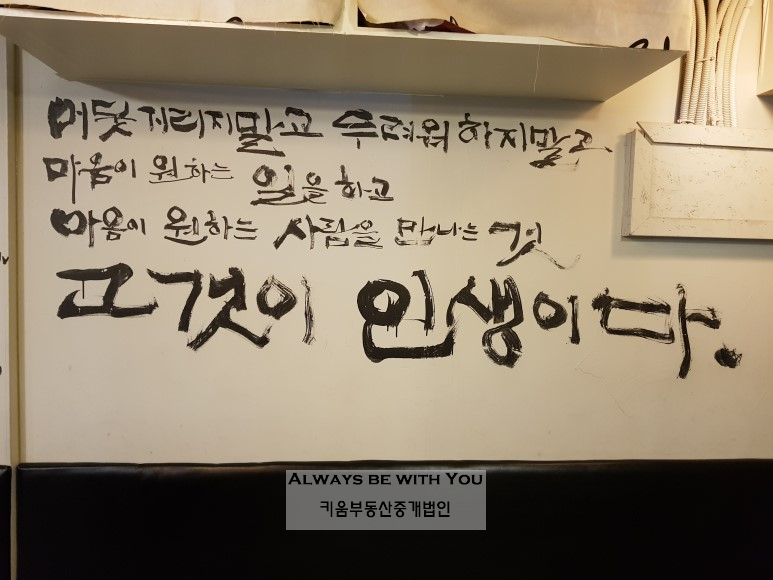 머뭇거리지말고 두려워하지말고
마음이 원하는 일을 하고
마음이 원하는 사람을 만나는 것
그것이 인생이다.
ALWAYS BE WITH YOU
키움부동산중개법인